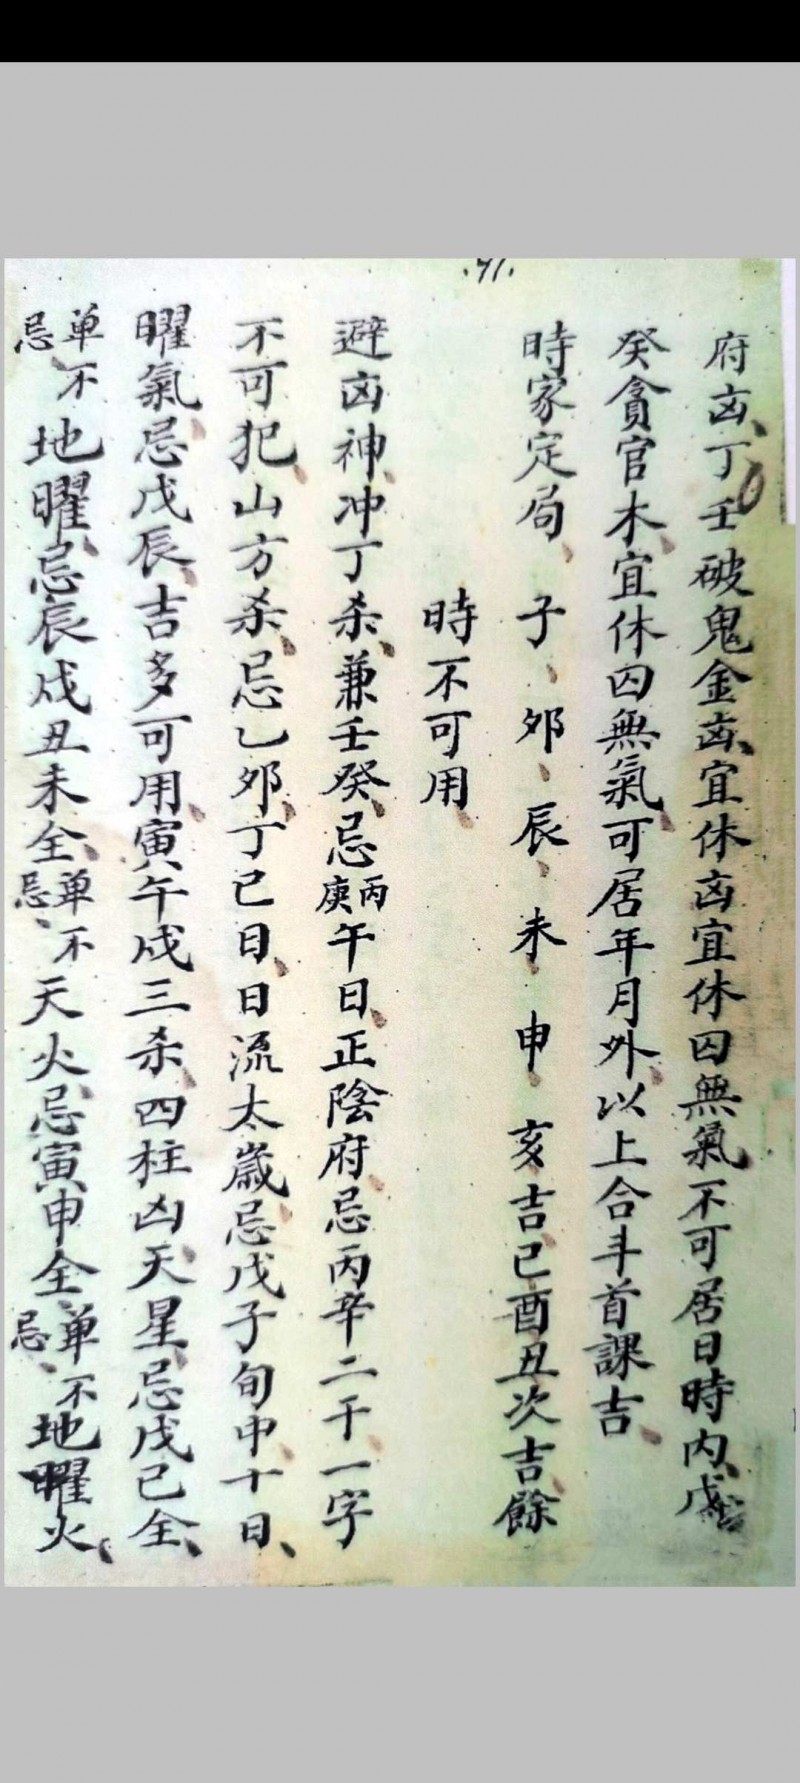 .71.
府凶、丁壬破鬼金凶、宜休凶宜休囚無氣不可居日時內、戊
癸貪官木、宜休囚無氣、可居年月外、以上合斗首課吉、
時家定局、子、夘、辰、未、申、亥吉、巳酉丑次吉、餘
時不可用、
避凶神、冲丁杀、兼壬癸、忌丙庚午日、正陰府忌丙辛二干一字
不可犯、山方杀、忌乙夘、丁巳日、日流太歲、忌戊子旬中十日、
曜氣忌戊辰、吉多可用、寅午戌三杀、四柱凶、天星、忌戊己全、
单不忌、地曜、忌辰戌丑未全、单不忌、天火、忌寅申全、单不忌、地曜火、